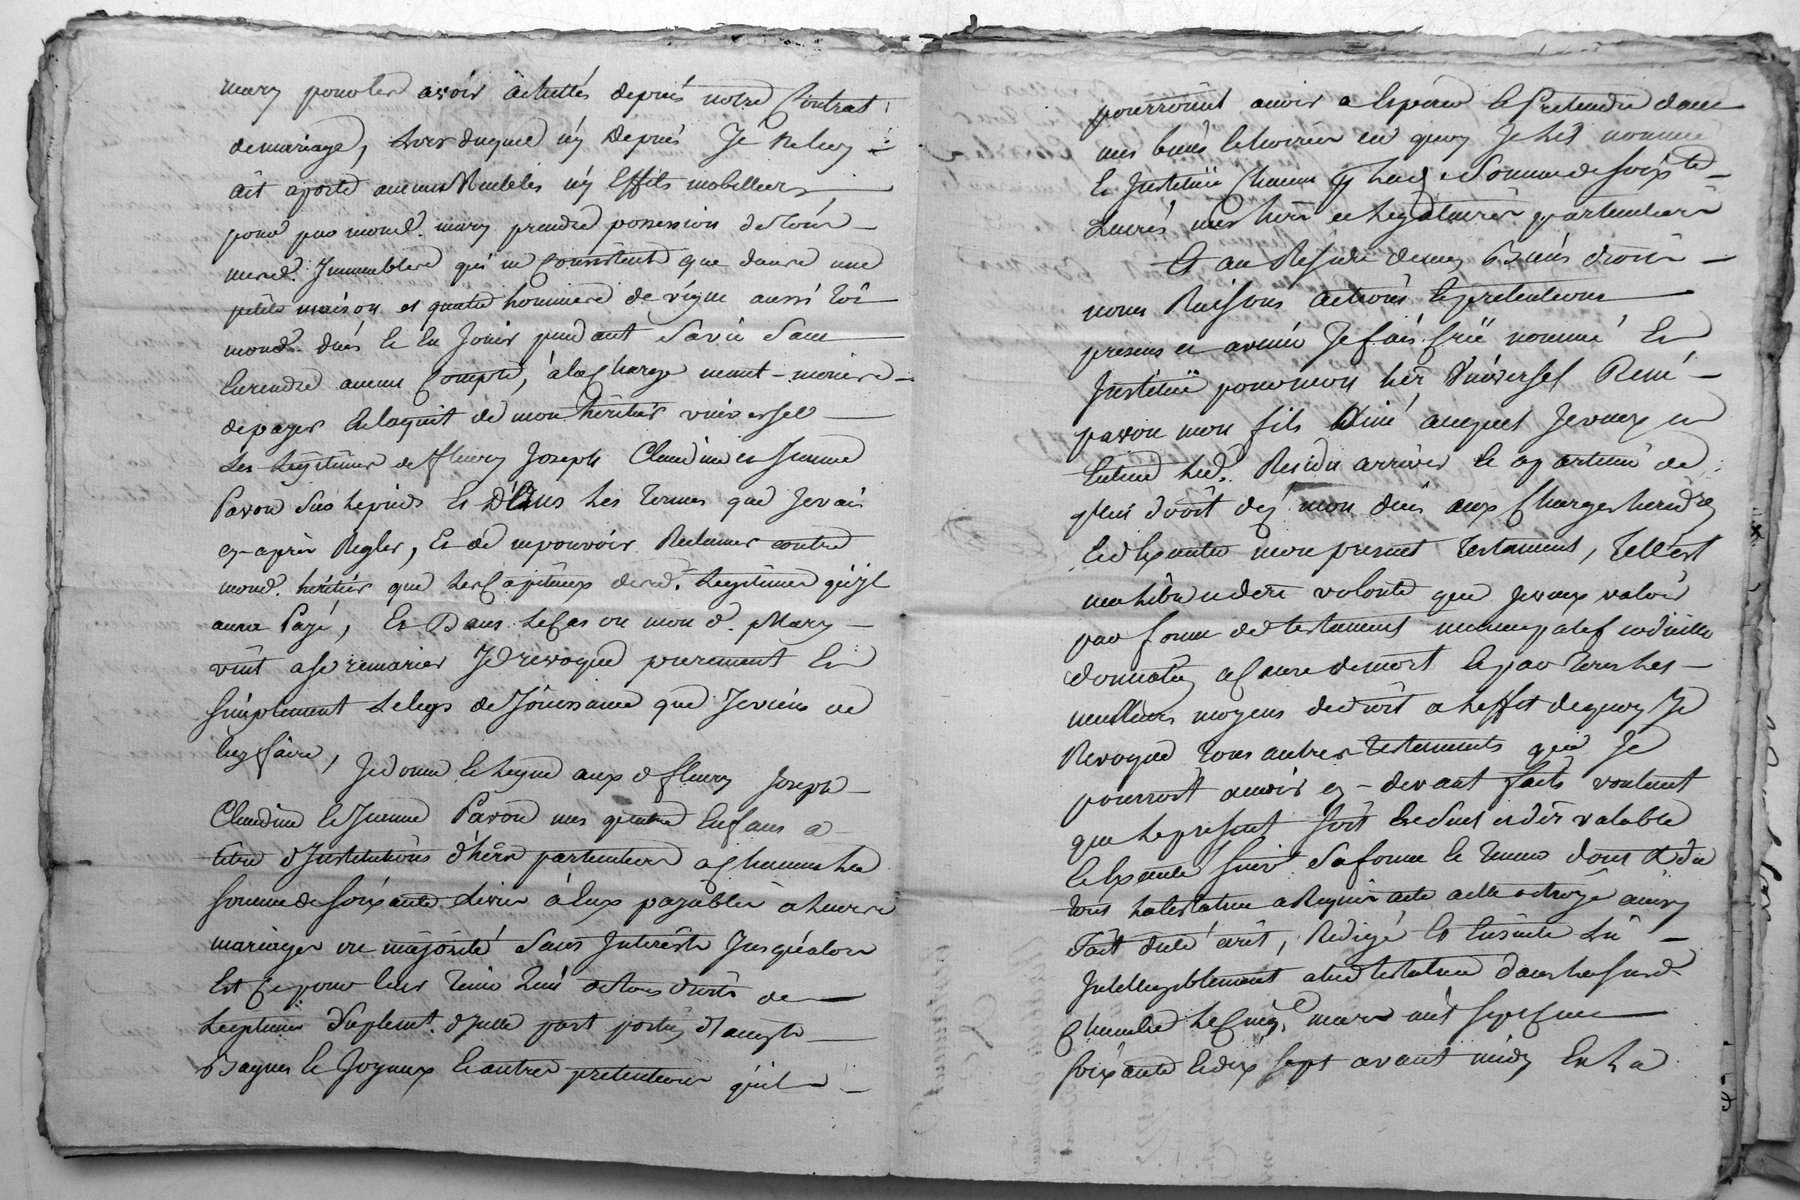 mary pouvoler avoir achettés depuis notre Contrat
de mariage, Lors duquel n'y Depuis Je ne luy
ait aporté aucuns Meubles n'y Effets mobilliers
pour par mond. mary prendre possession de tous
mesd. Immeubles qui ne Consistent que dans une
petite maison et quatre hommées de vigne aussi tôt
mond. dués Et En Jouir pendant Sa vie Sans
En rendre aucun Compte, à la Charge neant-moins
de payer En laquit de mon héritier universel
Les Légitimes de fleury Joseph Claudine et Jeanne
Pavon Sus Les pieds Et Dans Les Termes que Je vais
cy-après Regler, Et de ne pouvoir Reclamer contre
mond. héritier que Les Capitaux desd. Legitimes qu'jl
aura Payé, Et Dans Le Cas ou mon d. Mary
vint a se remarier Je revoque purement Et
Simplement Le legs de Jouissance que Je viens de
luy faire, Je donne Et Legue aux d fleury Joseph
Claudine Et Jeanne Pavon mes quatre Enfans a
titre d'Institutions d'hérs particuliers a chacuns La
Somme de Soixante Livres à Eux payables a Leurs
mariages ou majorité Sans Interêts Jusqu'alors
Est Ce pour leur Tenir Lieu de tous droits de
Legitimes Suplemt. d'jcelle part portion d'augmt
Bagues Et Joyaux Et autres pretentions qu'ils
pourroint avoir a Esperer Et Pretendre dans
mes biens Et hoirie en quoy Je Les nomme
Et Institüe Chacun en Lad. Somme de Soixte
Livres mes hérs et Legataires particuliers
Et au Residu de mes Biens droits
noms Raisons actions Et pretentions
presens et avenir Je fais Crée nomme Et
Institüe pour mon hér Universel René
pavon mon fils Aîné auquel Je veux et
Entend Led. Residu arriver Et apartenir de
plein droit dez mon dués aux Charges heredres
Et d'Executer mon present Testament, Tell'est
ma Libre et dere volonté que Je veux valoir
par forme de testament nuncupatif codicille
donnation a Cause de mort Et par tous Les
meilleurs moyens de droit a L'effet de quoy Je
Revoque tous autres Testaments que Je
pourroit avoir cy-devant faits voulant
que Le present Soit Le Seul et der valable
Et Executé Suivt Sa forme Et Teneur dont &
Lad. testatrice a Requis acte a elle octroyé ainsy
Fait dicté écrit, Redigé Et Ensuite Lû
Intelligiblement a lad testatrice dans Lesusd.
Chambre Le Cinqe mars mil Sept Cens
Soixante Et dix Sept avant midy En La